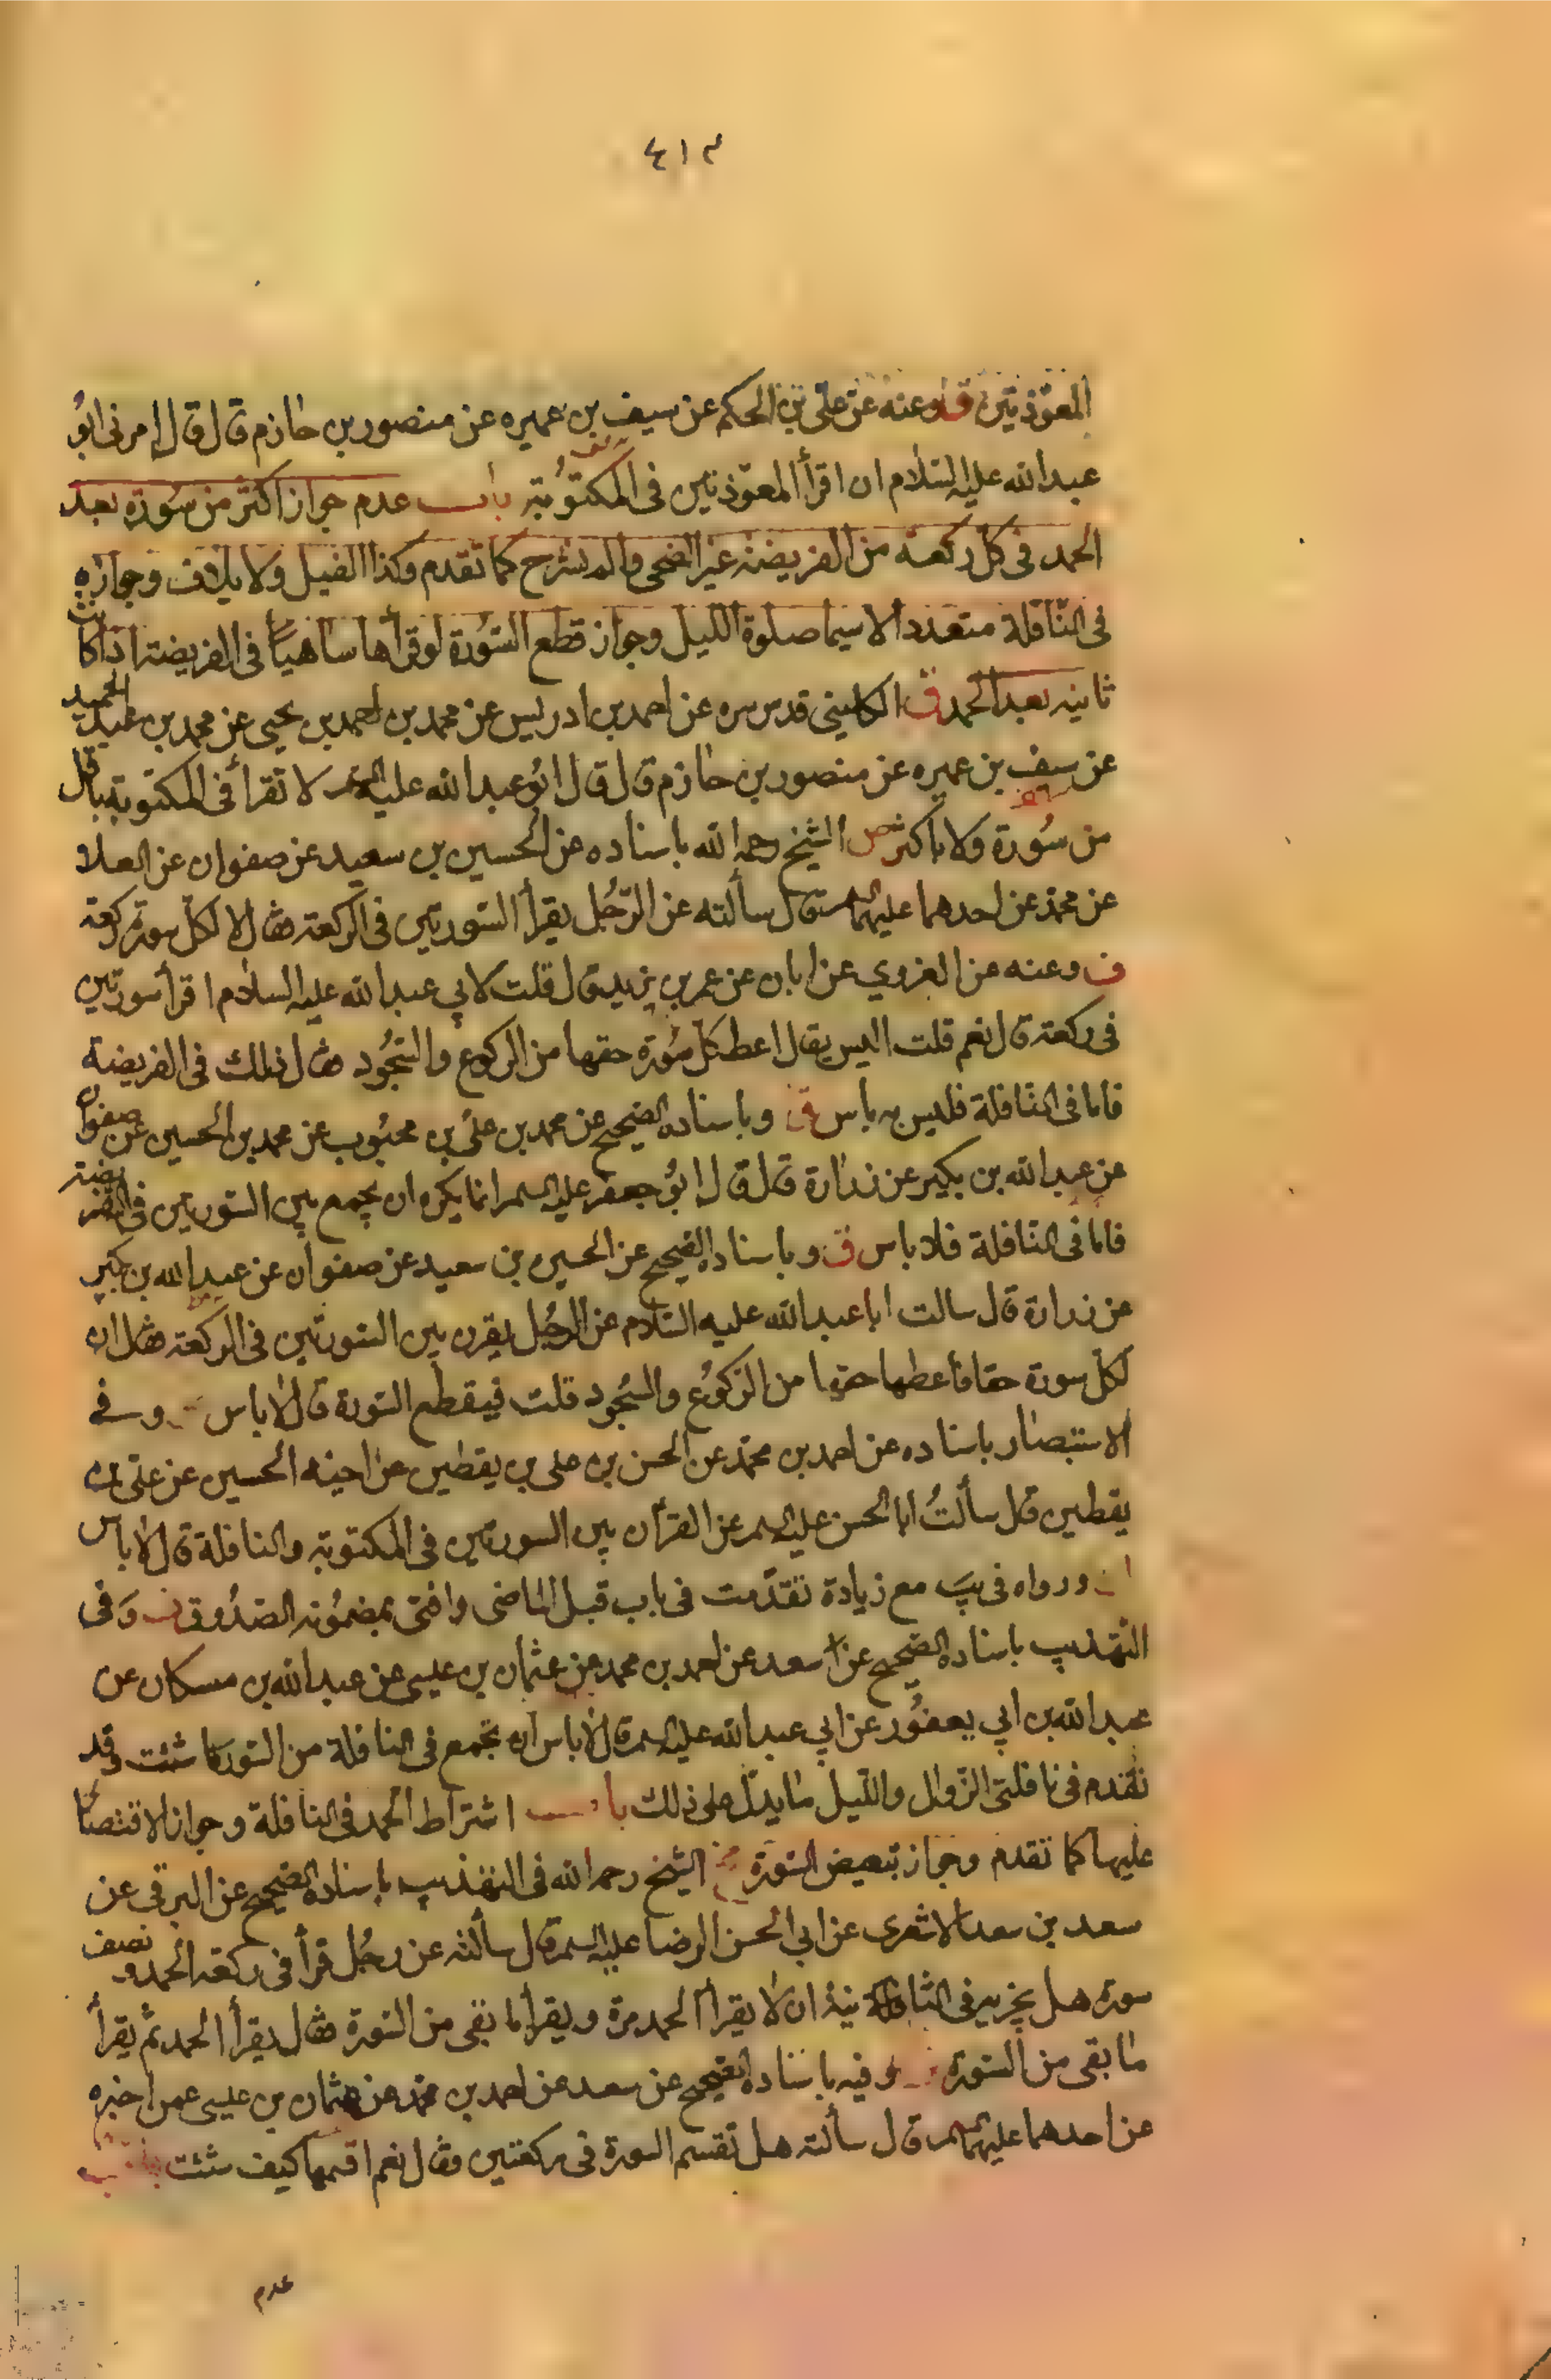 ٤١٣
المعوّذتين ق وعنه عن علي بن الحكم عن سيف بن عميره عن منصور بن حازم قال قال امرنى ابو
عبد الله عليه السّلام ان اقرأ المعوّذتين فى المكتوبة باب عدم جواز اكثر من سورة بعد
الحمد فى كل ركعة من الفريضة غير الضحى والم نشرح كما تقدم وكذا الفيل ولايلاف وجوازه
فى النّافلة متعددا لاسيما صلوة الليل وجواز قطع السّورة لو قرأها ساهيًا فى الفريضة اذا كانت
ثانيه بعد الحمد ق الكلينى قدس سره عن احمد بن ادريس عن محمد بن احمد بن يحيى عن محمد بن عبد الحميد
عن سيف بن عميره عن منصور بن حازم قال قال ابو عبد الله عليه السلم لا تقرأ فى المكتوبة باقل
من سورة ولا باكثر ص الشيخ رحمه الله باسناده عن الحسين بن سعيد عن صفوان عن العلا
عن محمد عن احدهما عليهما السلم قال سألته عن الرّجُل يقرأ السّورتين فى الركعة فقال لا لكل سورة ركعة
ف وعنه عن القروي عن ابان عن عمر بن يزيد قال قلت لابي عبد الله عليه السلام اقرأ سورتين
فى ركعة قال نعم قلت اليس يقال اعط كل سُورة حقها من الركوع والسّجُود فقال ذلك فى الفريضة
فاما فى النّافلة فليس به باس ق وباسناده الصحيح عن محمد بن علىّ بن محبُوب عن محمد بن الحسين عن صفوان
عن عبد الله بن بكير عن زرارة قال قال ابُو جعفر عليه السلم انما يكره ان يجمع بين السّورتين فى الفريضة
فاما فى النّافلة فلا باس ق وباسناده الصحيح عن الحسين بن سعيد عن صفوان عن عبد الله بن بكير
عن زرارة قال سالت ابا عبد الله عليه السّلام عن الرجُل يقرن بين السّورتين فى الركعة فقال ان
لكل سورة حقا فاعطها حقها من الرّكوُع والسُجود قلت فيقطع السّورة قال لا باس وفى
الاستبصار باسناده عن احمد بن محمّد عن الحسن بن على بن يقطين عن اخيه الحسين عن علىّ بن
يقطين قال سألتُ ابا الحسن عليه السلم عن القرآن بين السورتين فى المكتوبة والنافلة قال لا باس
ورواه فى يب مع زيادة تقدّمت فى باب قبل الماضى وافتى بمضمُونه الصّدُوق وَفى
التّهذيب باسناده الصّحيح عن سعد عن احمد بن محمد عن عثمان بن عيسى عن عبد الله بن مسكان عن
عبد الله بن ابي يعفُور عن ابي عبد الله عليه السلم قال لا باس ان تجمع فى النافلة من السّور ما شئت وقد
تقدم فى نافلتى الزّوال واللّيل ما يدلّ على ذلك باب اشتراط الحمد فى النافلة وجواز الاقتصار
عليها كما تقدم وجواز تبعيض السّورة الشيخ رحمه الله فى التهذيب باسناده الصحيح عن البرقى عن
سعد بن سعد الاشعرى عن ابي الحسن الرضا عليه السلم قال سألته عن رجُل قرأ فى ركعة الحمد ونصف
سورة هل يجزيه فى الثانية ان لا يقرأ الحمد مرة ويقرأ ما بقى من السّورة فقال يقرأ الحمد ثم يقرأ
ما بقى من السّورة وفيه باسناده الصّحيح عن سعد عن احمد بن محمد عن عثمان بن عيسى عمن اخبره
عن احدهما عليهما السلم قال سألته هل تقسم السورة فى ركعتين فقال نعم اقسمها كيف شئت باب
عدم